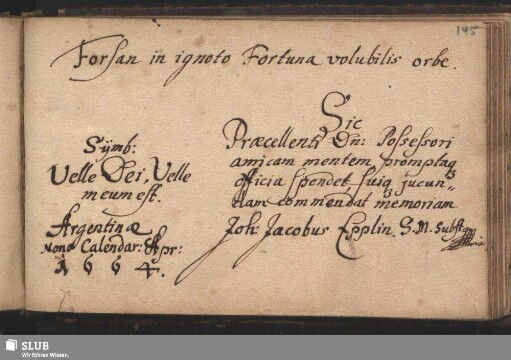 145
Forsan in ignoto Fortuna volubilis orbe.
Sijmb:
Velle Dei, Velle
meum est.
Argentinæ
Nono Calendar: Apr:
1664.
Sic
Præcellenti Dn: Possessori
amicam mentem promptaq3
officia spondet suiq3 jucun„
dam commendat memoriam
Joh: Jacobus Epplin. S.M. Subst
SLUB
Wir führen Wissen.